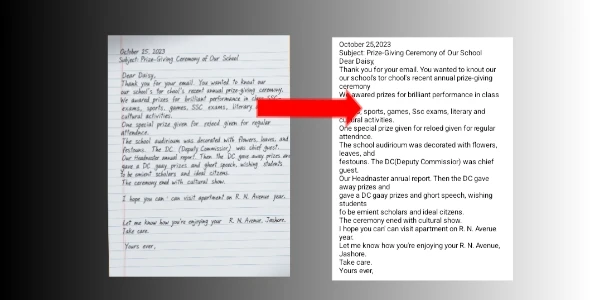 October 25, 2023
Subject: Prize-Giving Ceremony of Our School
Dear Daisy,
Thank you for your email. You wanted to know out our
our school's tor chool's recent annual prize-giving ceremony.
We awared prizes for brilliant performance in class SSC
exams, sports, games, SSC exams, literary
cultural activities.
One special prize given for reloed given for regular
attendnce.
The school audirioum was decorated with flowers, leaves, and
festouns. The DC (Deputy Commission) was chief guest.
Our Headmaster annual report. Then the DC gave away prizes and
gave a DC gaay prizes and short speech, wishing students
to be emient scholars and ideal citizens.
The ceremony ended with cultural show.
I hope you can can visit apartment on R. N. Avenue year.
Let me know how you're enjoying your R. N. Avenue, Jashore.
Take care.
Yours ever,
October 25,2023
Subject: Prize-Giving Ceremony of Our School
Dear Daisy,
Thank you for your email. You wanted to know out
our school's tor chool's recent annual prize-giving
ceremony
We awared prizes for brilliant performance in class
sports, games, Ssc exams, literary and
cultural activities.
One special prize given for reloed given for regular
attendnce.
The school audirioum was decorated with flowers,
leaves, ahd
festouns. The DC(Deputy Commissior) was chief
guest.
Our Headmaster annual report. Then the DC gave
away prizes and
gave a DC gaay prizes and ghort speech, wishing
students
fo be emient scholars and ideal citzens.
The ceremony ended with cultural show.
I hope you can can visit apartment on R. N. Avenue
year.
Let me know how you're enjoying your R. N. Avenue,
Jashore.
Take care.
Yours ever,